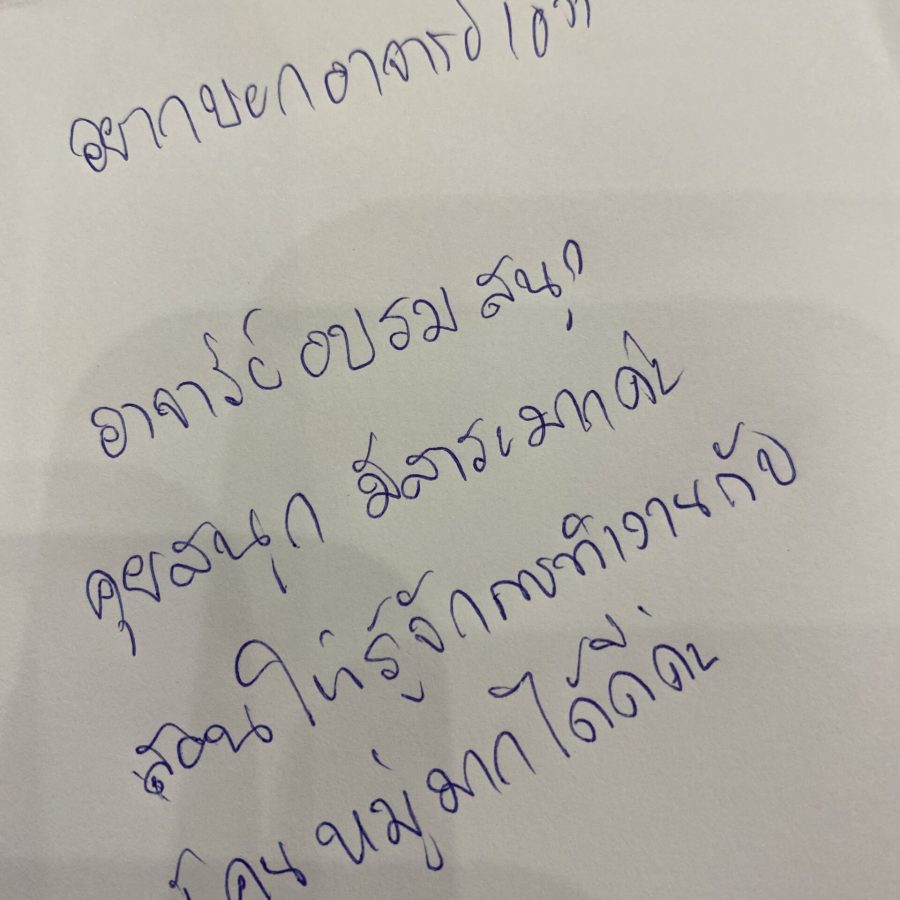 อยากบอกอาจารย์
อาจารย์ อบรม สนุก
คุยสนุก มีสาระมากค่ะ
สอนให้รู้จักการทำงานกับ
ผู้คนหมู่มากได้ดีค่ะ